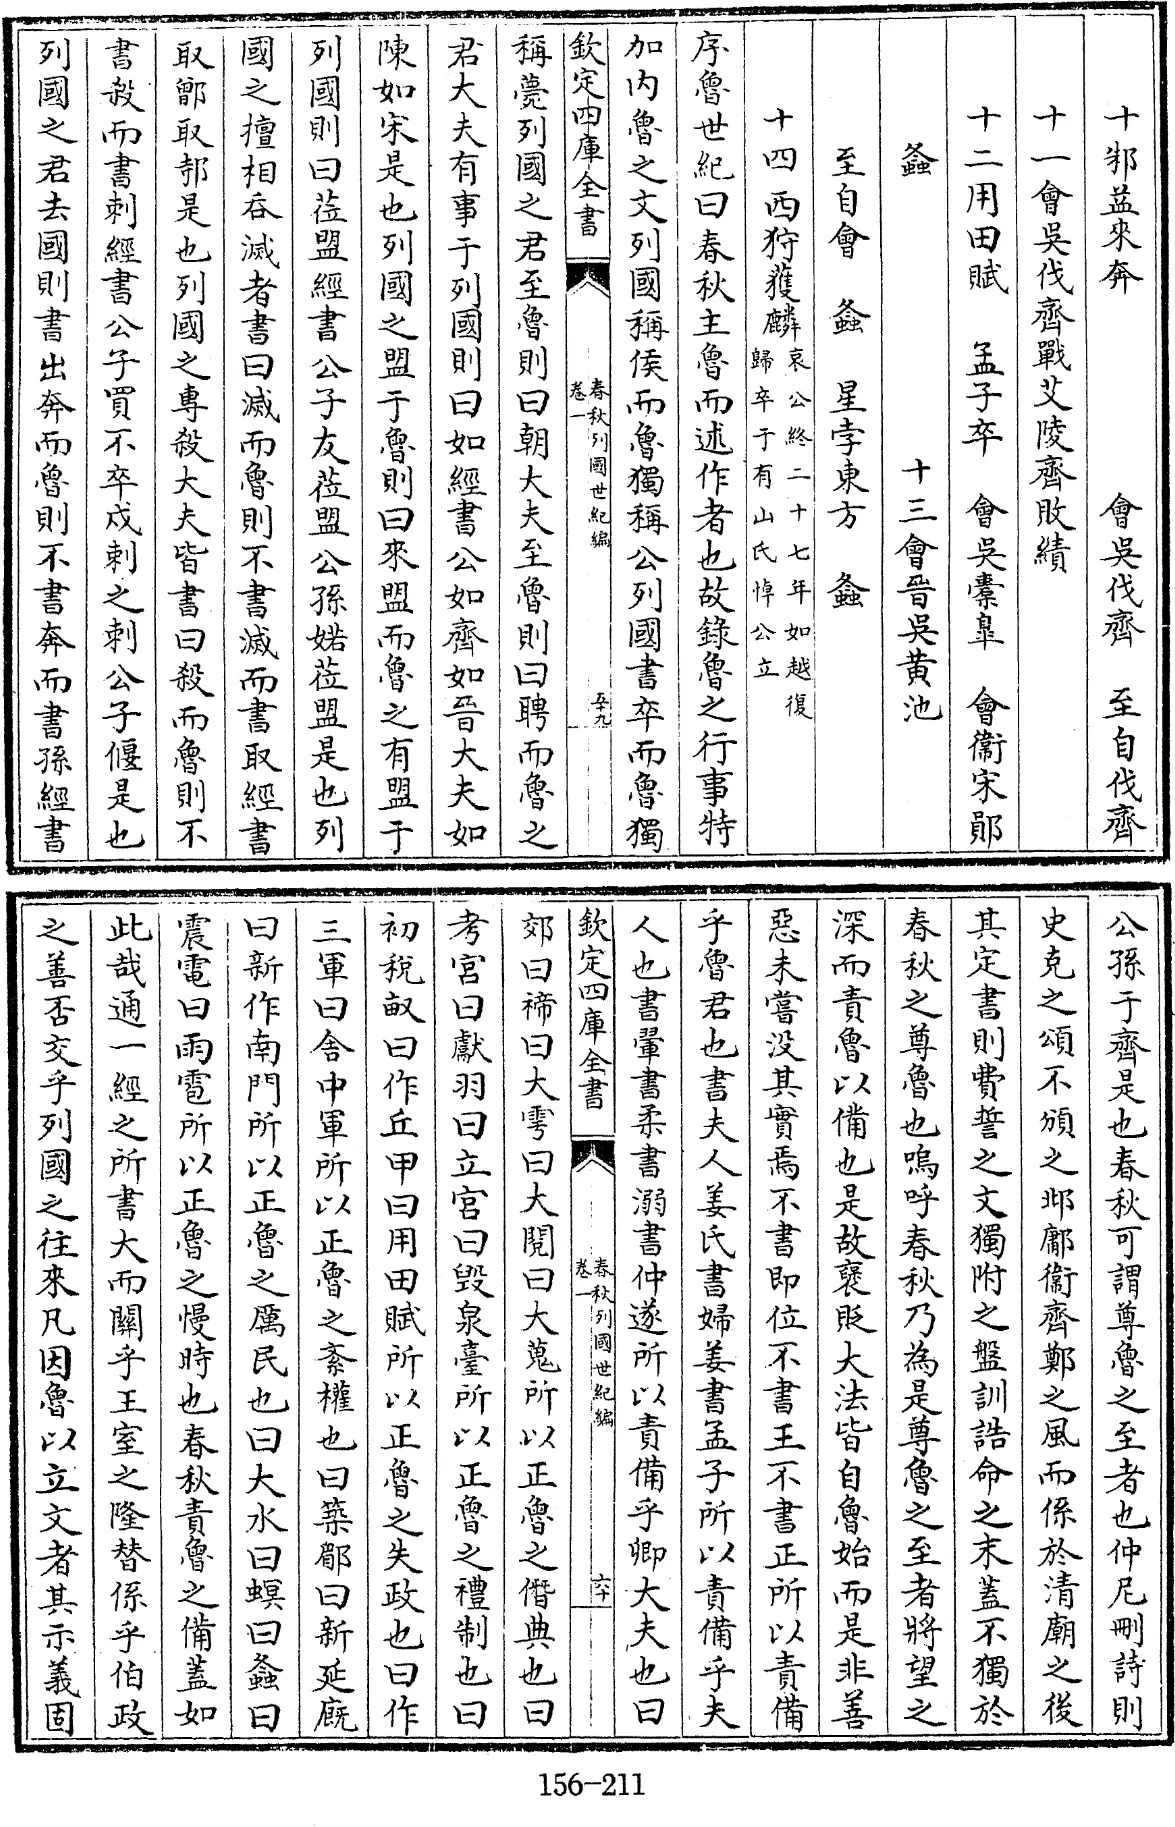 十邾益來奔　會吳伐齊　至自伐齊
十一會吳伐齊戰艾陵齊敗績
十二用田賦　孟子卒　會吳橐臯　會衛宋鄖
螽　十三會晉吳黄池
至自會　螽　星孛東方　螽
十四西狩獲麟哀公終二十七年如越復
歸卒于有山氏悼公立
序魯世紀曰春秋主魯而述作者也故錄魯之行事特
加内魯之文列國稱侯而魯獨稱公列國書卒而魯獨
欽定四庫全書
春秋列國世紀編
卷一
五十九
稱薨列國之君至魯則曰朝大夫至魯則曰聘而魯之
君大夫有事于列國則曰如經書公如齊如晉大夫如
陳如宋是也列國之盟于魯則曰來盟而魯之有盟于
列國則曰莅盟經書公子友莅盟公孫婼莅盟是也列
國之擅相吞滅者書曰滅而魯則不書滅而書取經書
取鄫取邿是也列國之專殺大夫皆書曰殺而魯則不
書殺而書刺經書公子買不卒戍刺之刺公子偃是也
列國之君去國則書出奔而魯則不書奔而書孫經書
公孫于齊是也春秋可謂尊魯之至者也仲尼刪詩則
史克之頌不頒之邶鄘衛齊鄭之風而係於清廟之後
其定書則費誓之文獨附之盤訓誥命之末蓋不獨於
春秋之尊魯也嗚呼春秋乃為是尊魯之至者將望之
深而責魯以備也是故襃貶大法皆自魯始而是非善
惡未嘗没其實焉不書即位不書王不書正所以責備
乎魯君也書夫人姜氏書婦姜書孟子所以責備乎夫
人也書翬書柔書溺書仲遂所以責備乎卿大夫也曰
欽定四庫全書
春秋列國世紀編
卷一
六十
郊曰禘曰大雩曰大閱曰大蒐所以正魯之僭典也曰
考宫曰獻羽曰立宫曰毀泉臺所以正魯之禮制也曰
初稅畝曰作丘甲曰用田賦所以正魯之失政也曰作
三軍曰舍中軍所以正魯之紊權也曰築郿曰新延廐
曰新作南門所以正魯之厲民也曰大水曰螟曰螽曰
震電曰雨雹所以正魯之慢時也春秋責魯之備蓋如
此哉通一經之所書大而關乎王室之隆替係乎伯政
之善否交乎列國之往來凡因魯以立文者其示義固
156-211